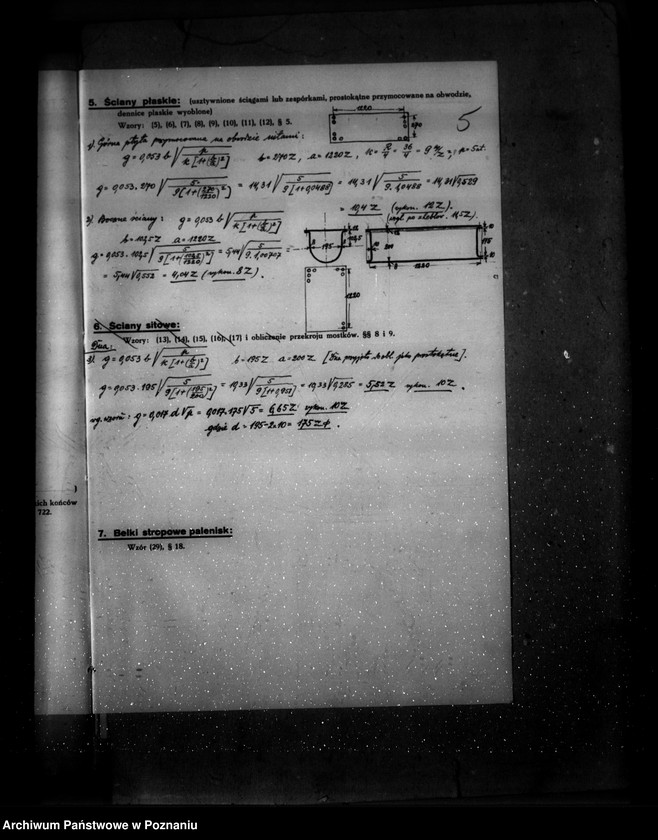 5. Ściany płaskie: (usztywnione ściągami lub zespórkami, prostokątne przymocowane na obwodzie,
dennice płaskie wyoblone)
Wzory: (5), (6), (7), (8), (9), (10), (11), (12), § 5.
5
1220
270
1) Górna płyta przymocowana na obwodzie nitami:
g = 0,053 b √ p / k[1+(b/a)²]
b = 270 Z, a = 1220 Z, k = R/4 = 36/4 = 9
g = 0,053.270 √ 5 / 9[1+(270/1220)²] = 14,31 √ 5 / 9[1+0,0488] = 14,31 √ 5 / 9.1,0488 = 14,31 √0,529
= 10,4 Z (wykon. 12 Z).
2) Boczne ściany: g = 0,053 b √ p / k[1+(b/a)²]
b = 102,5 Z a = 1220 Z
g = 0,053.102,5 √ 5 / 9[1+(102,5/1220)²] = 5,44 √ 5 / 9.1,00707 =
= 5,44 √0,552 = 4,04 Z (wykon. 8 Z).
195
1220
175
10
10
1220
6. Ściany sitowe:
Wzory: (13), (14), (15), (16), (17) i obliczenie przekroju mostków. §§ 8 i 9.
Dna:
3) g = 0,053 b √ p / k[1+(b/a)²] b = 195 Z a = 200 Z
g = 0,053.195 √ 5 / 9[1+(195/200)²] = 10,33 √ 5 / 9[1+0,952] = 10,33 √0,285 = 5,52 Z wykon. 10 Z.
wg. wzoru: g = 0,017 d √p = 0,017.175 √5 = 6,65 Z wykon. 10 Z
gdzie d = 195-2x10 = 175 Z.
)
ich końców
722.
7. Belki stropowe palenisk:
Wzór (29), § 18.
Archiwum Państwowe w Poznaniu